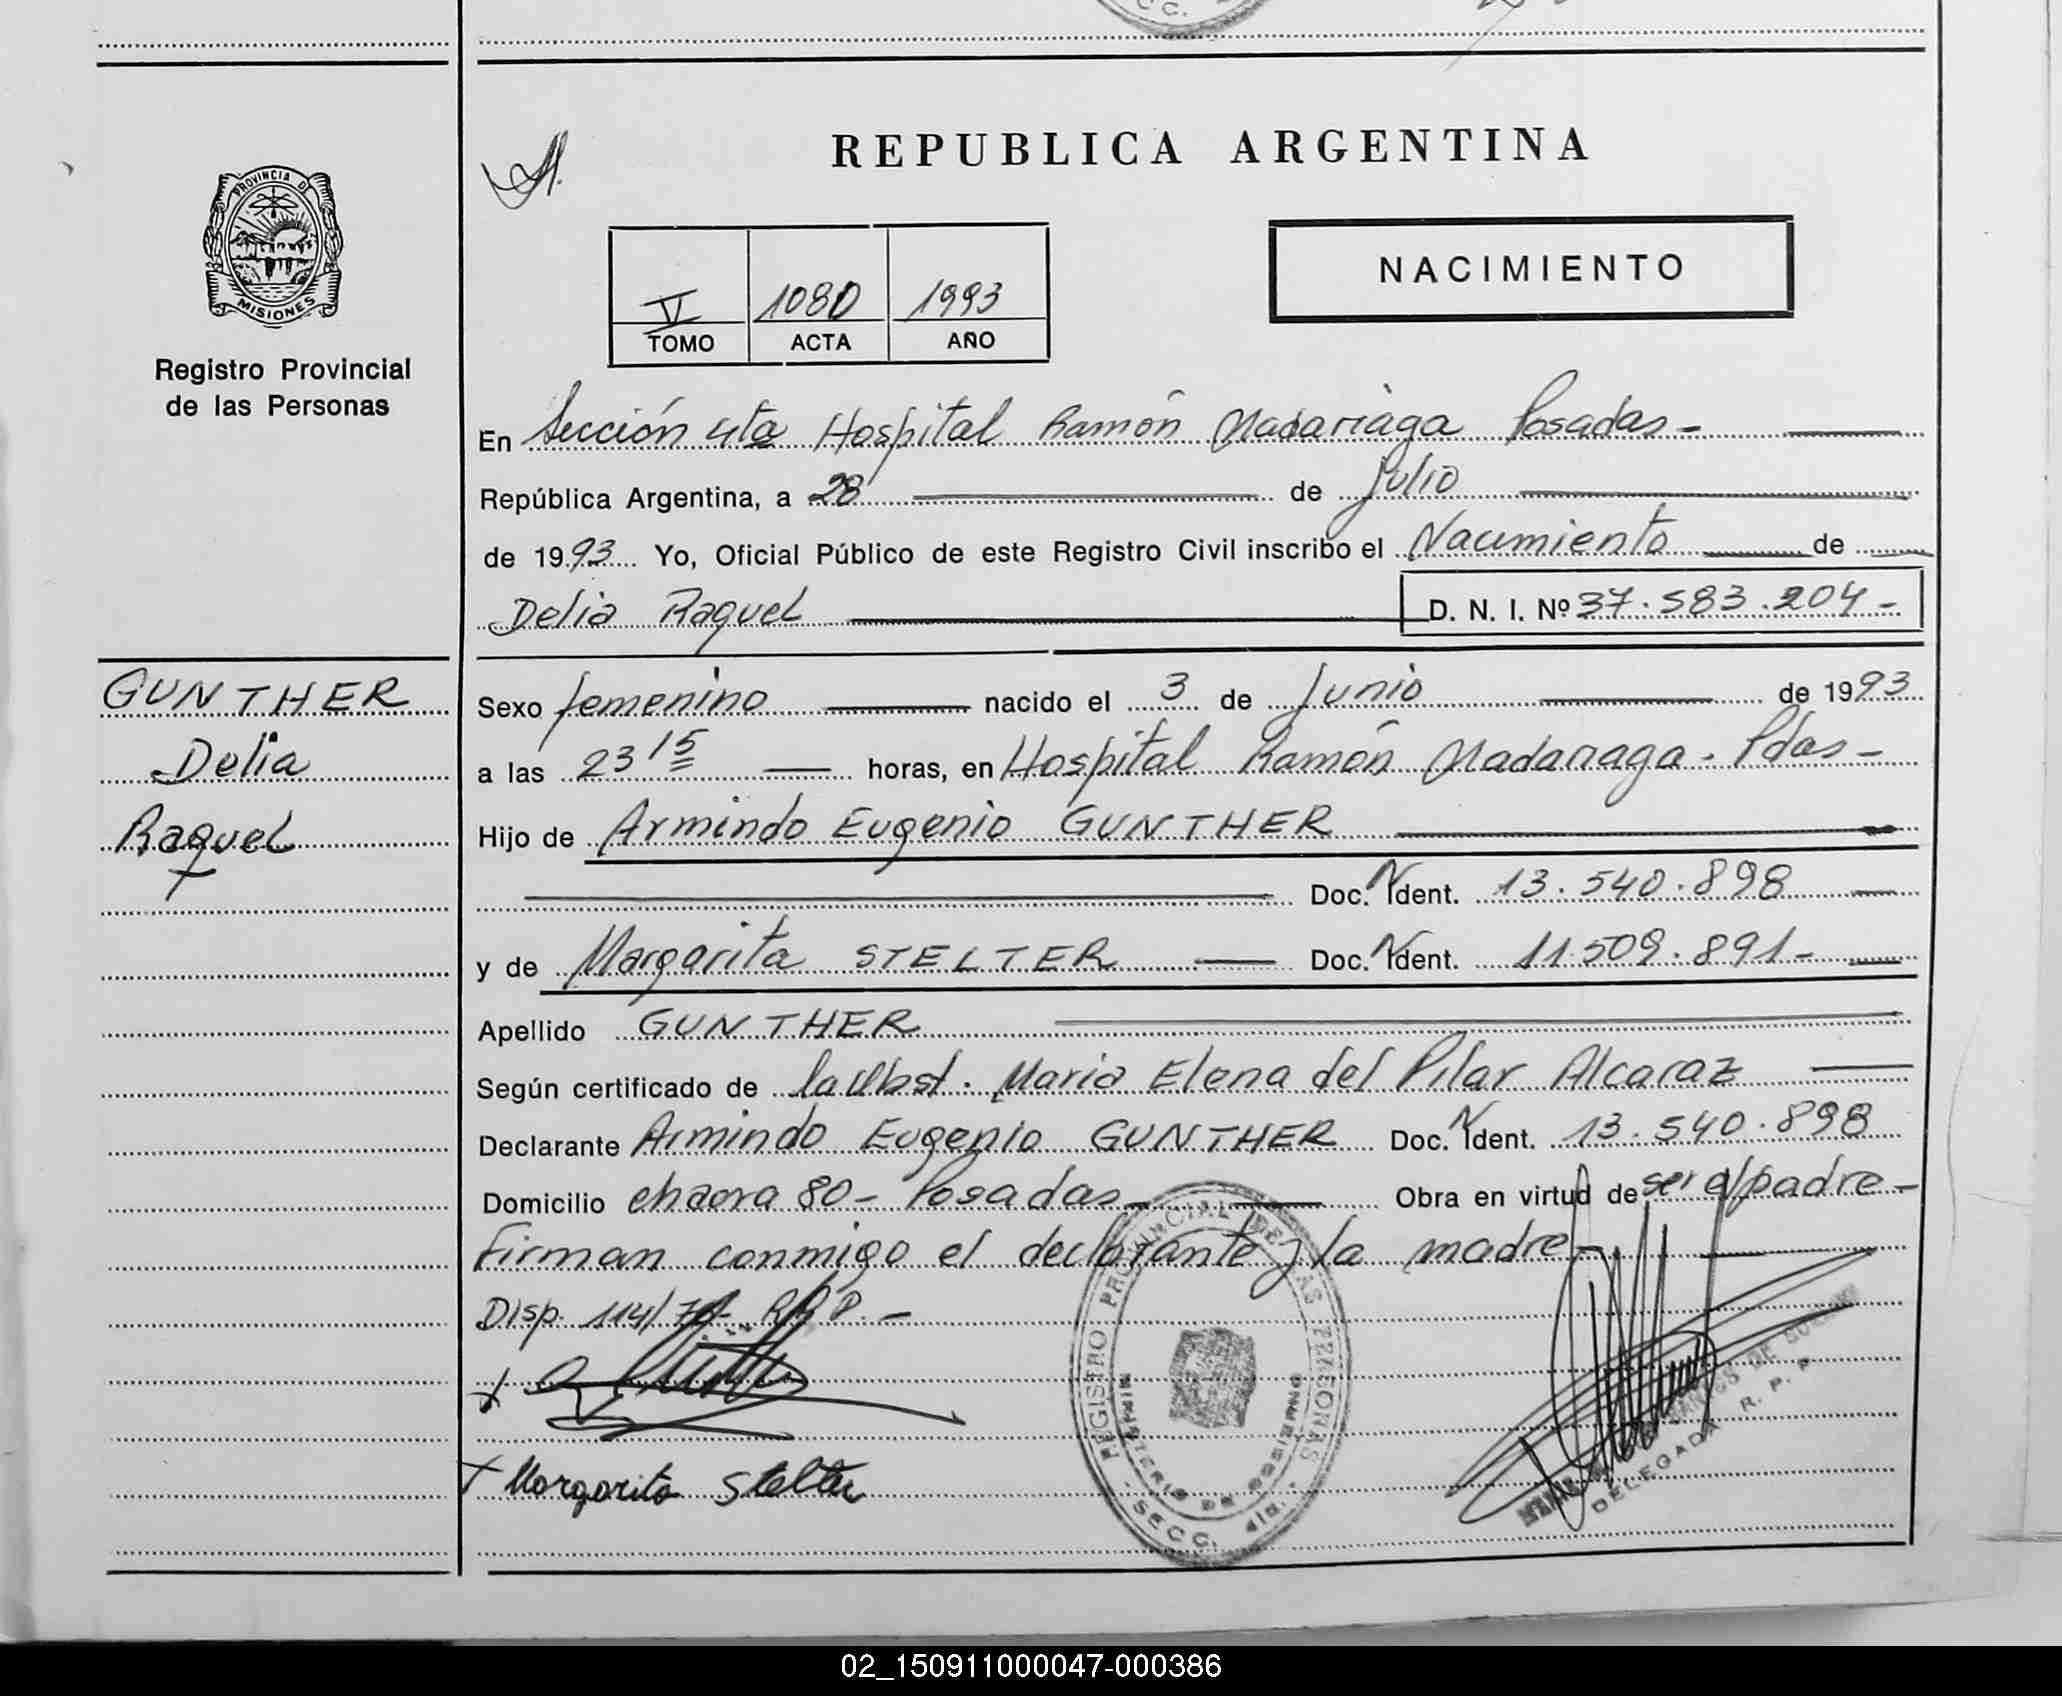 REPUBLICA ARGENTINA
PROVINCIA DE
MISIONES
Registro Provincial
de las Personas
NACIMIENTO
VI 1080 1993
TOMO ACTA AÑO
En Sección 4ta Hospital Ramón Madariaga Posadas -
República Argentina, a 28 de Julio
de 1993 Yo, Oficial Público de este Registro Civil inscribo el Nacimiento de
Delia Raquel D. N. I. Nº 37.583.204-
GUNTHER
Delia
Raquel
Sexo femenino nacido el 3 de Junio de 1993
a las 23 15 horas, en Hospital Ramón Madariaga. Pdas-
Hijo de Armindo Eugenio GUNTHER
Doc. N Ident. 13.540.898
y de Margarita STELTER Doc. N Ident. 11.509.891-
Apellido GUNTHER
Según certificado de la Obst. Maria Elena del Pilar Alcaraz
Declarante Armindo Eugenio GUNTHER Doc. N Ident. 13.540.898
Domicilio chacra 80- Posadas- Obra en virtud de ser el padre-
Firman conmigo el declarante y la madre-
Disp. 114/ R.P.P. -
Margarita Stelter
REGISTRO PROVINCIAL DE LAS PERSONAS
MINISTERIO DE GOBIERNO
- SECC. 4ta. -
DELEGADA R. P. P.
02_150911000047-000386